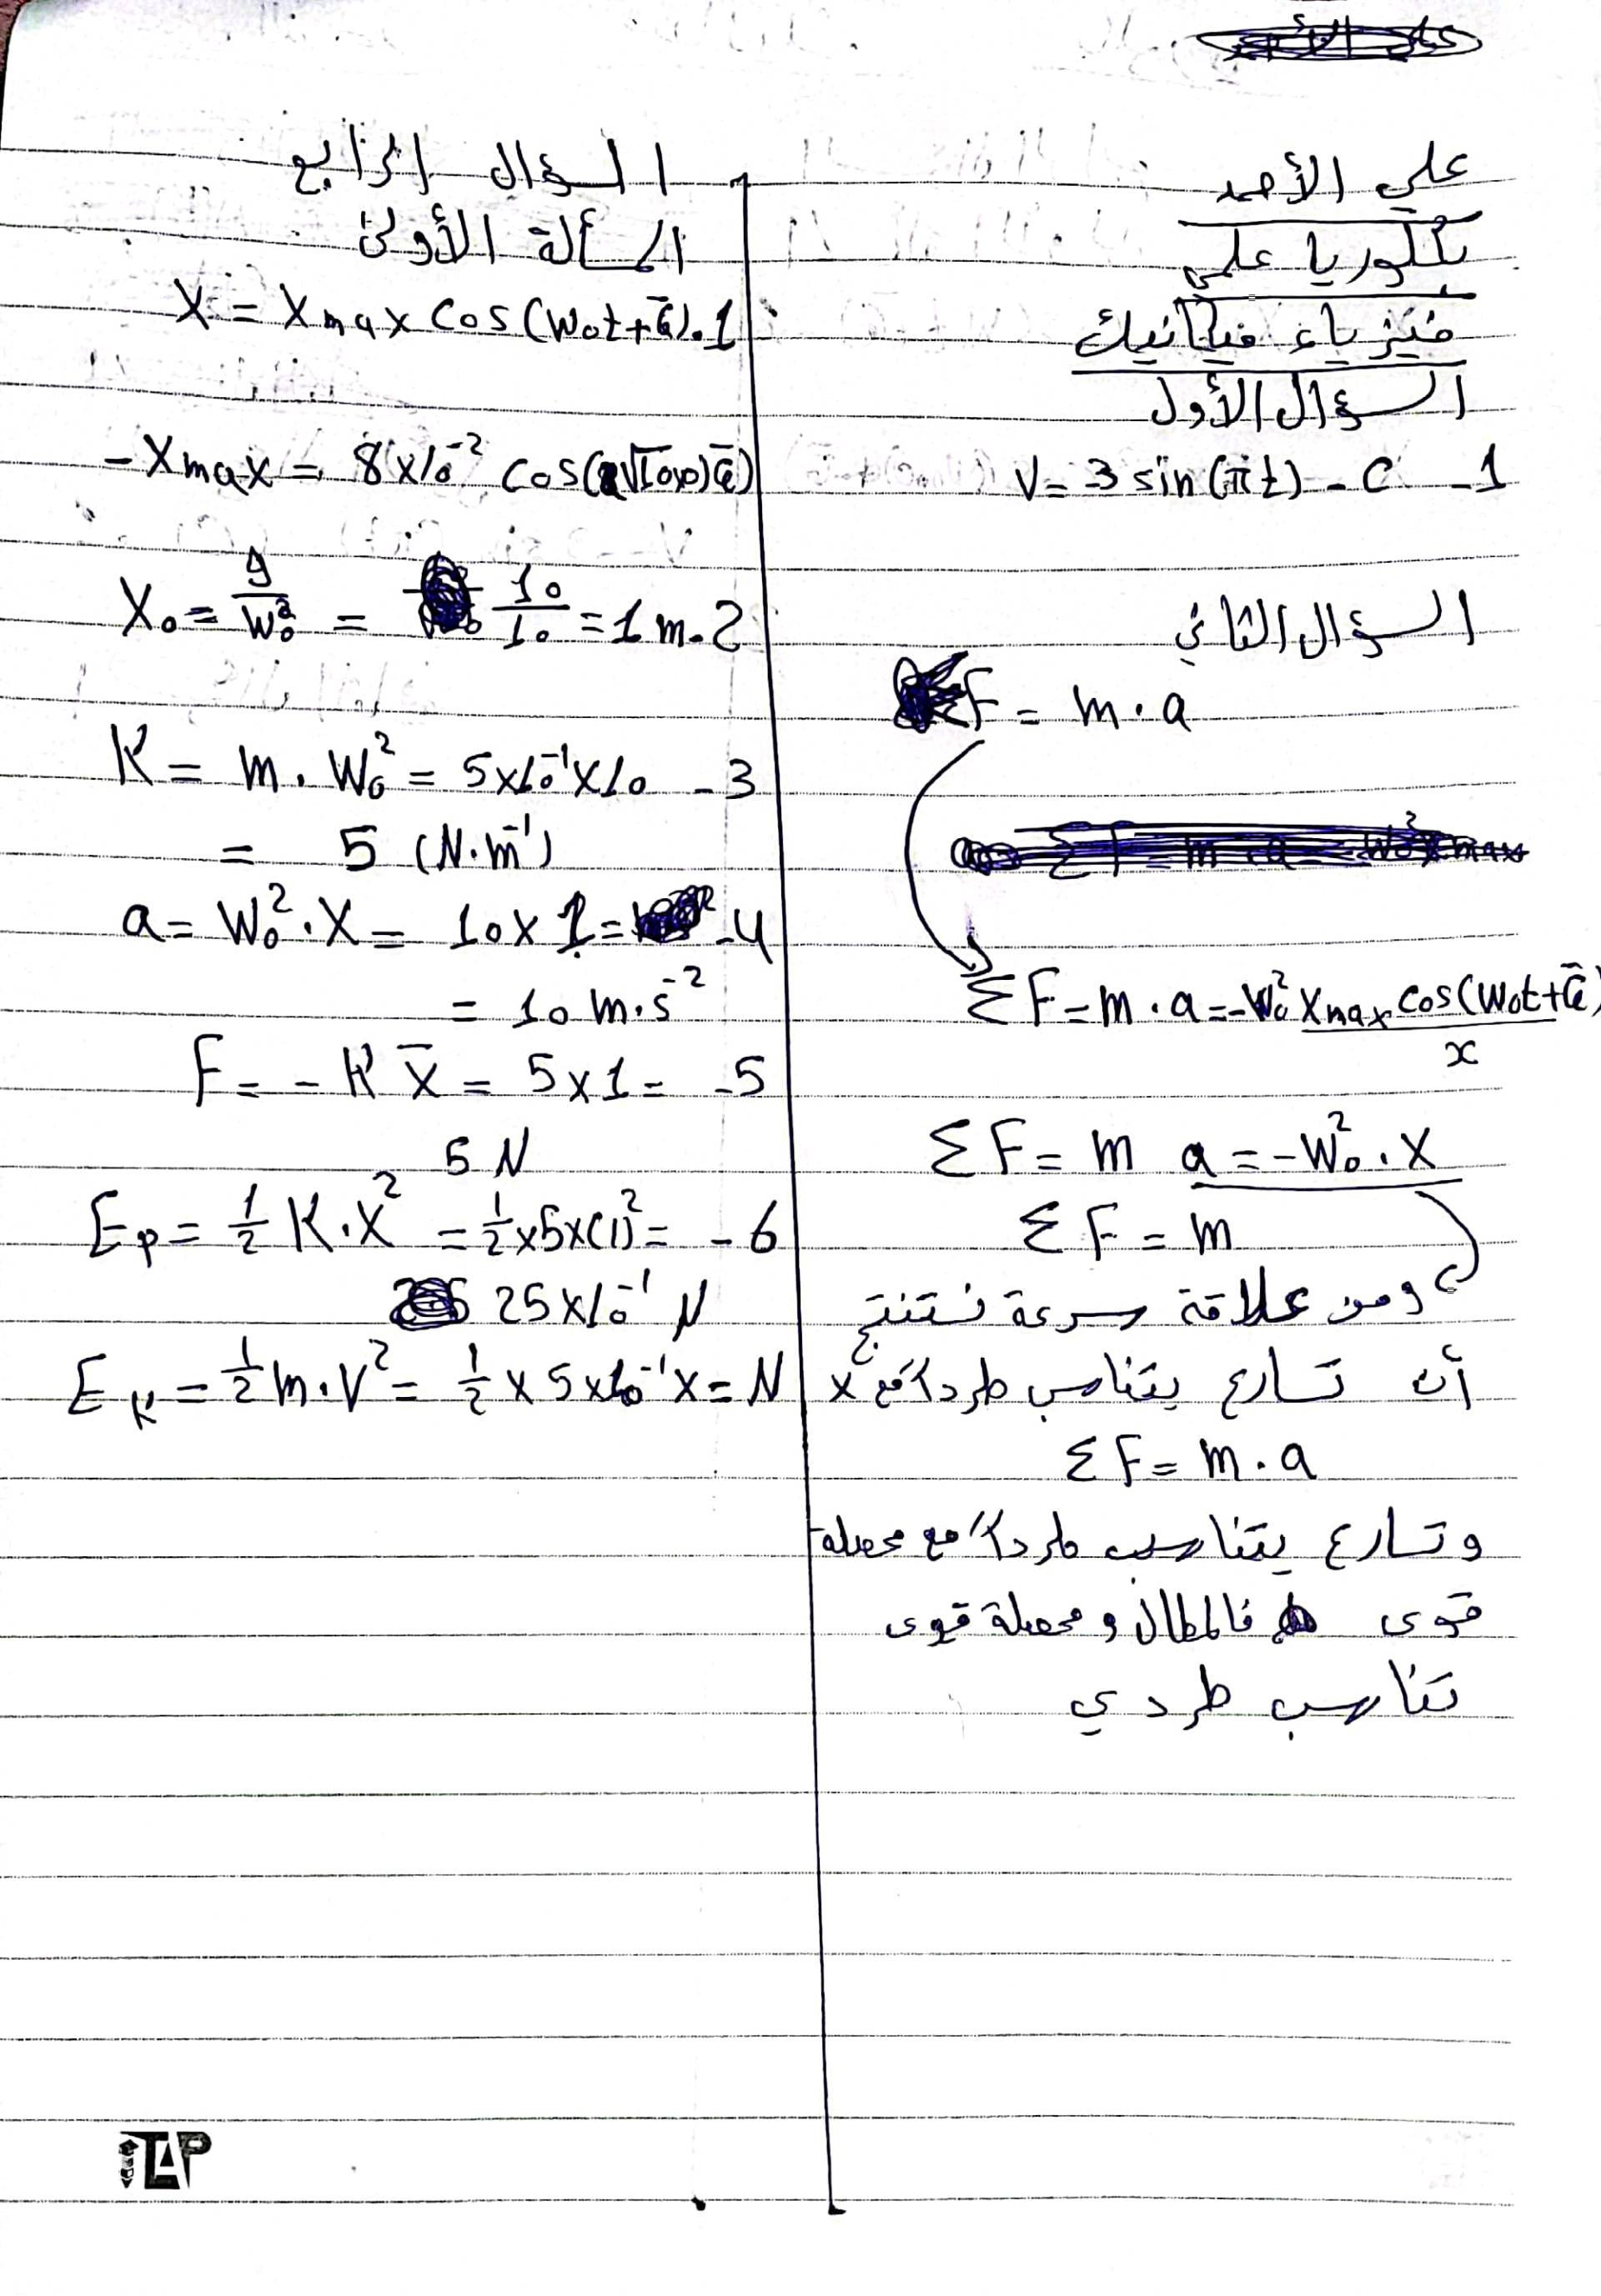 علي الأحمد
بكلوريا علمي
فيزياء ميكانيك
السؤال الأول
1 - C - V = 3 sin(πt)
السؤال الثاني
ΣF = m · a
ΣF = m · a = -W₀² Xmax cos(W₀t + φ̄)
x
ΣF = m a = -W₀² · X
ΣF = m
ومن علاقة سرعة نستنتج
أن تسارع يتناسب طرداً مع x
ΣF = m · a
وتسارع يتناسب طرداً مع محصلة
قوى فالمطال ومحصلة قوى
تناسب طردي
السؤال الرابع
المسألة الأولى
X = Xmax cos(W₀t + φ̄) . 1
- Xmax = 8 × 10⁻² cos(√10×0) φ̄)
X₀ = g/W₀² = 10/10 = 1 m . 2
K = m . W₀² = 5×10⁻¹×10 - 3
= 5 (N.m⁻¹)
a = W₀² . X = 10 × 1 = - 4
= 10 m.s⁻²
F = - K X̄ = 5 × 1 = - 5
5 N
Ep = 1/2 K.X² = 1/2 × 5 × (1)² = - 6
25×10⁻¹ N
Ek = 1/2 m.V² = 1/2 × 5×10⁻¹ × = N
iTAP